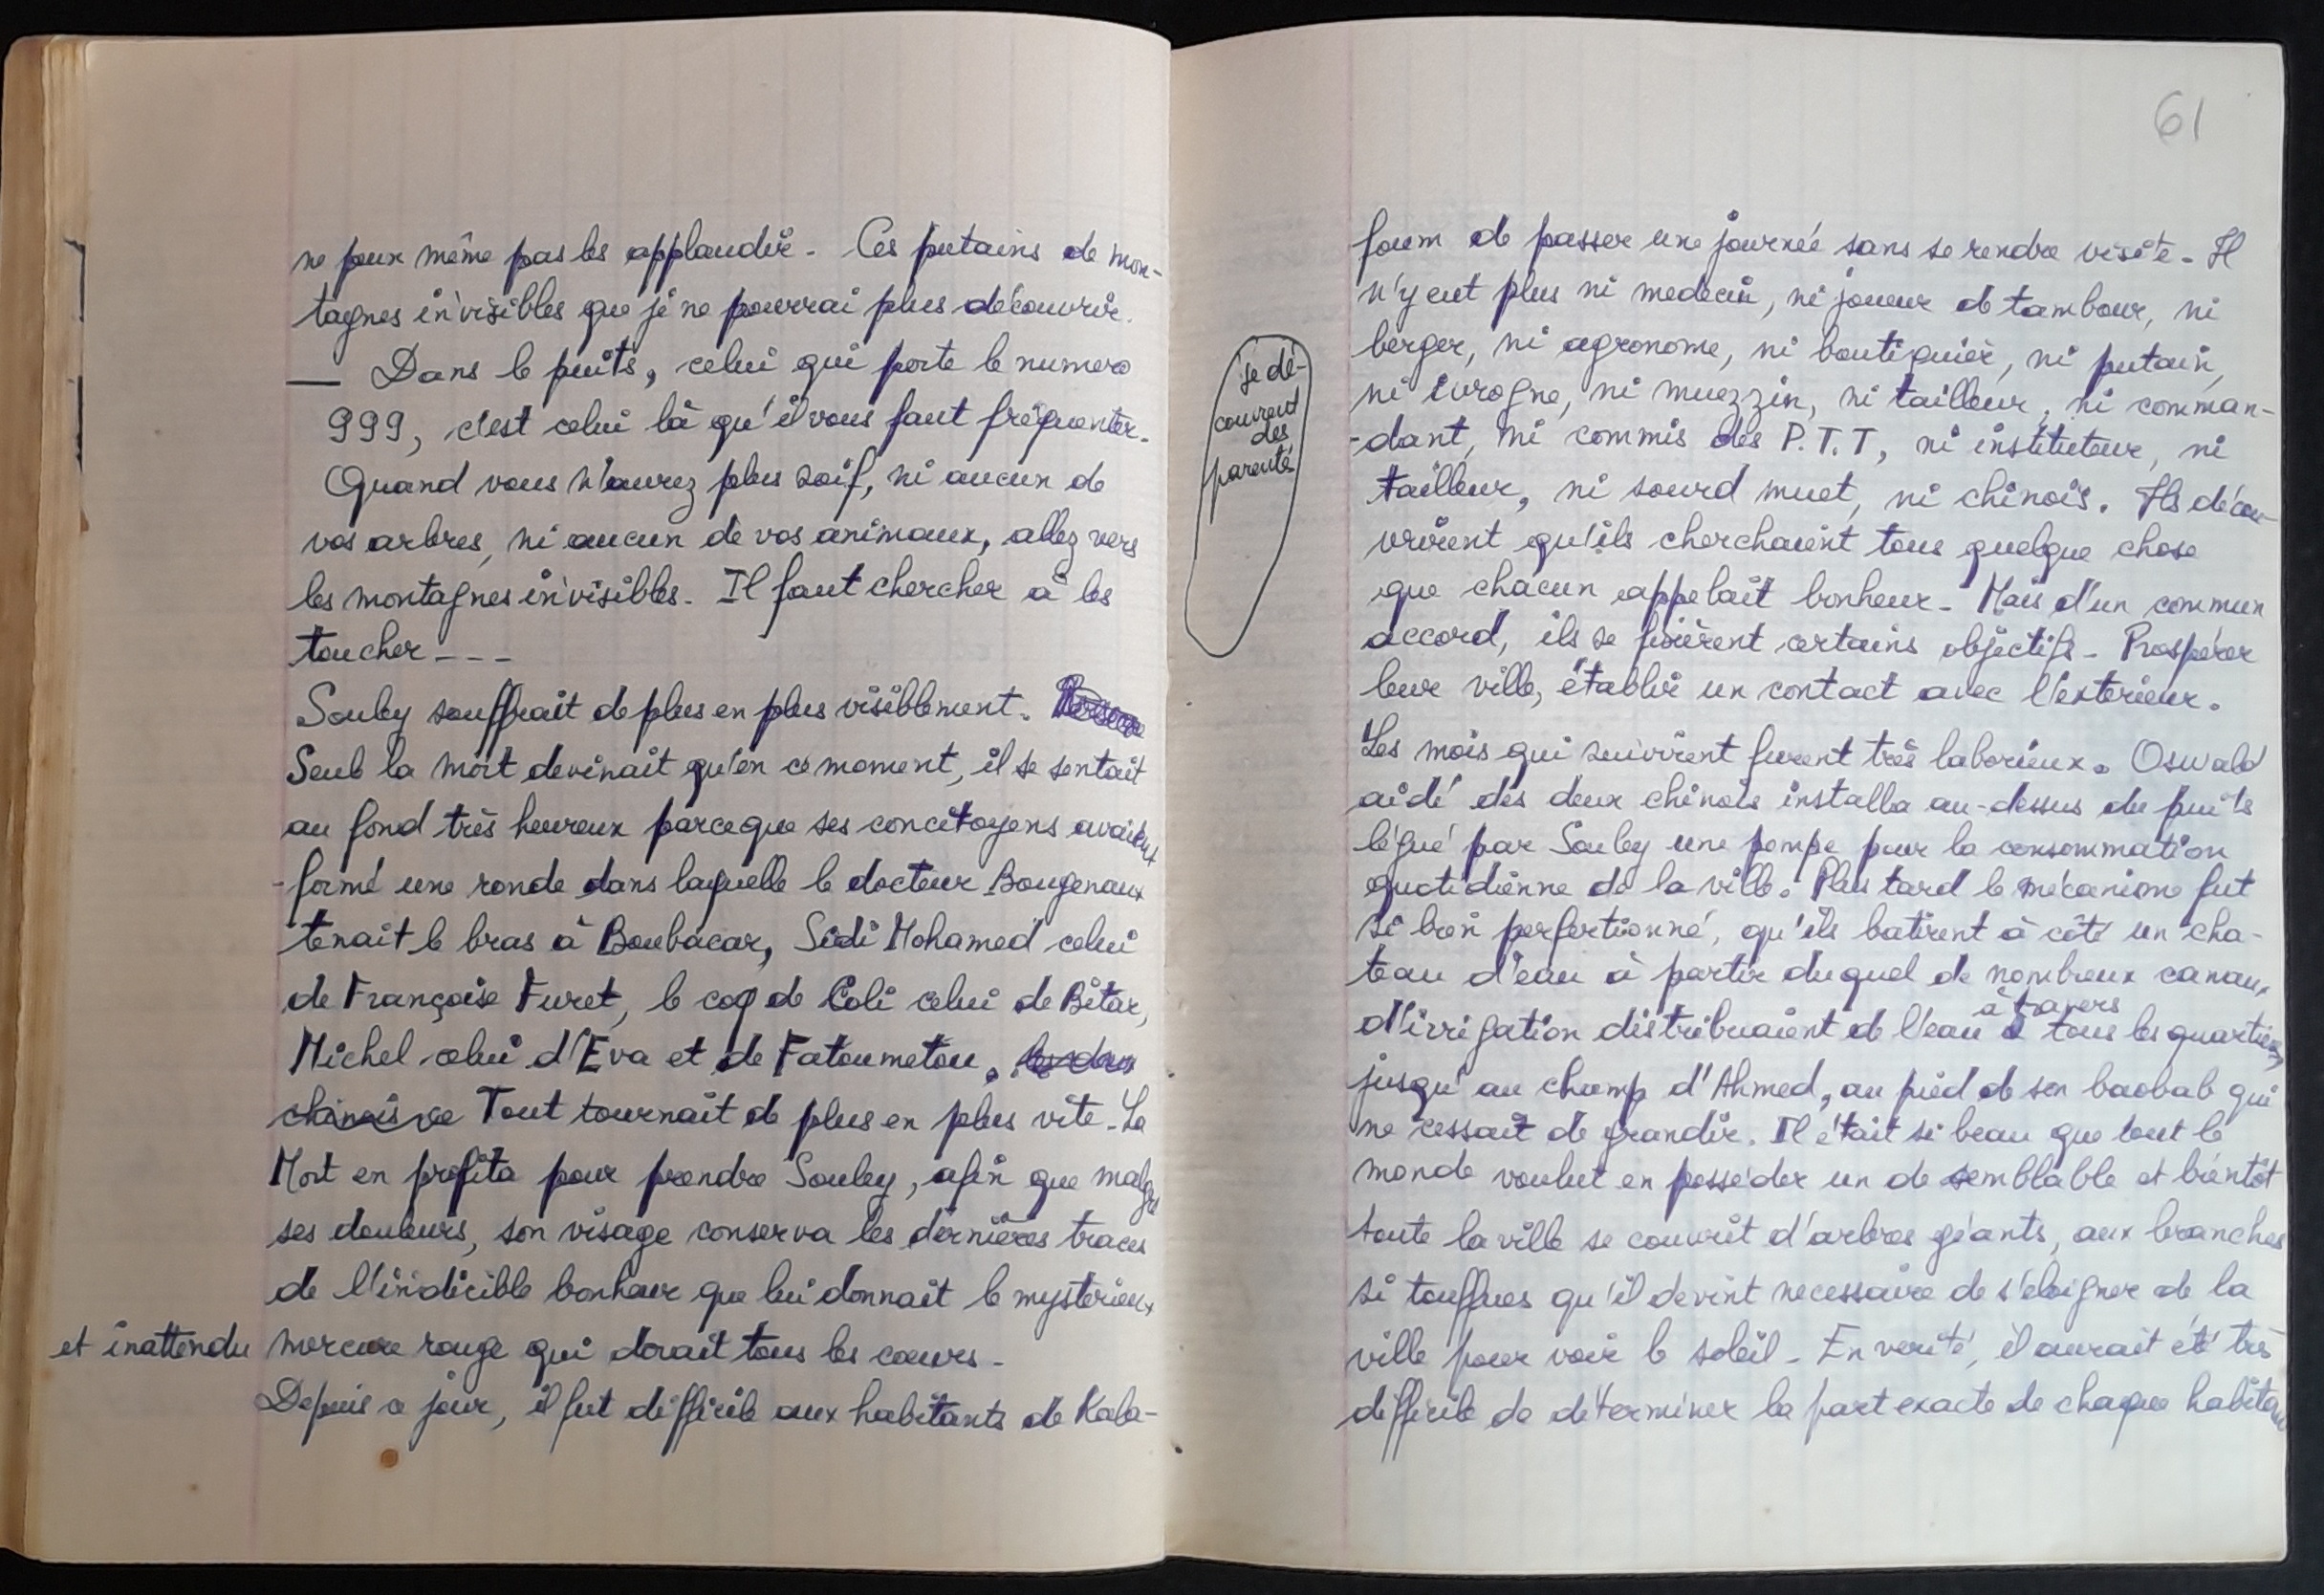 ne peux même pas les applaudir - Ces putains de mon-
tagnes invisibles que je ne pourrai plus découvrir.
— Dans le puits, celui qui porte le numero
999, c'est celui là qu'il vous faut fréquenter.
Quand vous n'aurez plus soif, ni aucun de
vos arbres, ni aucun de vos animaux, allez vers
les montagnes invisibles - Il faut chercher à les
toucher - - -
Souley souffrait de plus en plus visiblement.
Seule la mort devinait qu'en ce moment, il se sentait
au fond très heureux parceque ses concitoyens avaient
formé une ronde dans laquelle le docteur Bougenaux
tenait le bras à Boubacar, Sidi Mohamed celui
de Françoise Furet, le coq de Coli celui de Bitar,
Michel celui d'Eva et de Fatoumetou. les deux
chinois ce Tout tournait de plus en plus vite - La
Mort en profita pour prendre Souley, afin que malgré
ses douleurs, son visage conserva les dernières traces
de l'indicible bonheur que lui donnait le mysterieux
et inattendu mercure rouge qui dorait tous les cœurs -
Depuis ce jour, il fut difficile aux habitants de Kala-
61
foum de passer une journée sans se rendre visite - Il
n'y eut plus ni medecin, ni joueur de tambour, ni
berger, ni agronome, ni boutiquier, ni putain,
ni ivrogne, ni muezzin, ni tailleur, ni comman-
-dant, ni commis des P.T.T, ni instituteur, ni
tailleur, ni sourd muet, ni chinois. Ils décou-
vrirent qu'ils cherchaient tous quelque chose
que chacun appelait bonheur - Mais d'un commun
accord, ils se fixèrent certains objectifs - Prospérer
leur ville, établir un contact avec l'exterieur.
Les mois qui suivirent furent très laborieux. Oswald
aidé des deux chinois installa au-dessus du puits
légué par Souley une pompe pour la consommation
quotidienne de la ville. Plus tard le mécanisme fut
si bien perfertionné, qu'ils batirent à côté un cha-
teau d'eau à partir duquel de nombreux canaux
à travers
d'irrigation distribuaient de l'eau à tous les quartiers
jusqu'au champ d'Ahmed, au pied de son baobab qui
ne cessait de grandir. Il était si beau que tout le
monde voulut en posséder un de semblable et bientôt
toute la ville se couvrit d'arbres géants, aux branches
si touffues qu'il devint necessaire de s'éloigner de la
ville pour voir le soleil - En verité, il aurait été très
difficile de déterminer la part exacte de chaque habitant
se dé-
couvrent
des
parentés